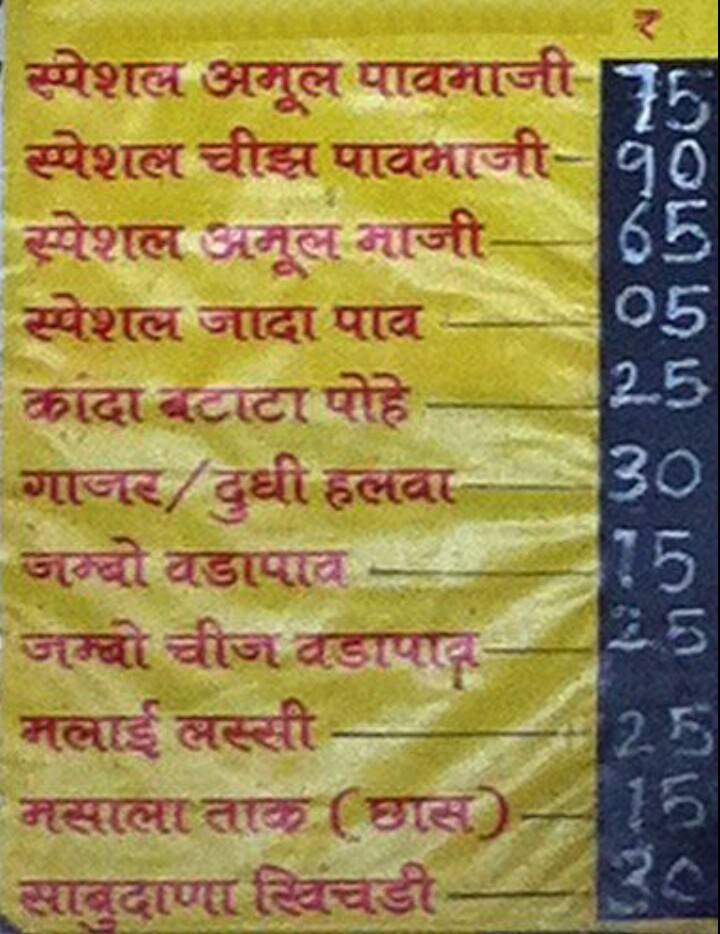 ₹
स्पेशल अमूल पावभाजी 75
स्पेशल चीझ पावभाजी 90
स्पेशल अमूल भाजी 65
स्पेशल जादा पाव 05
कांदा बटाटा पोहे 25
गाजर/दुधी हलवा 30
जम्बो वडापाव 15
जम्बो चीज वडापाव 25
मलाई लस्सी 25
मसाला ताक (छास) 15
साबुदाणा खिचडी 30